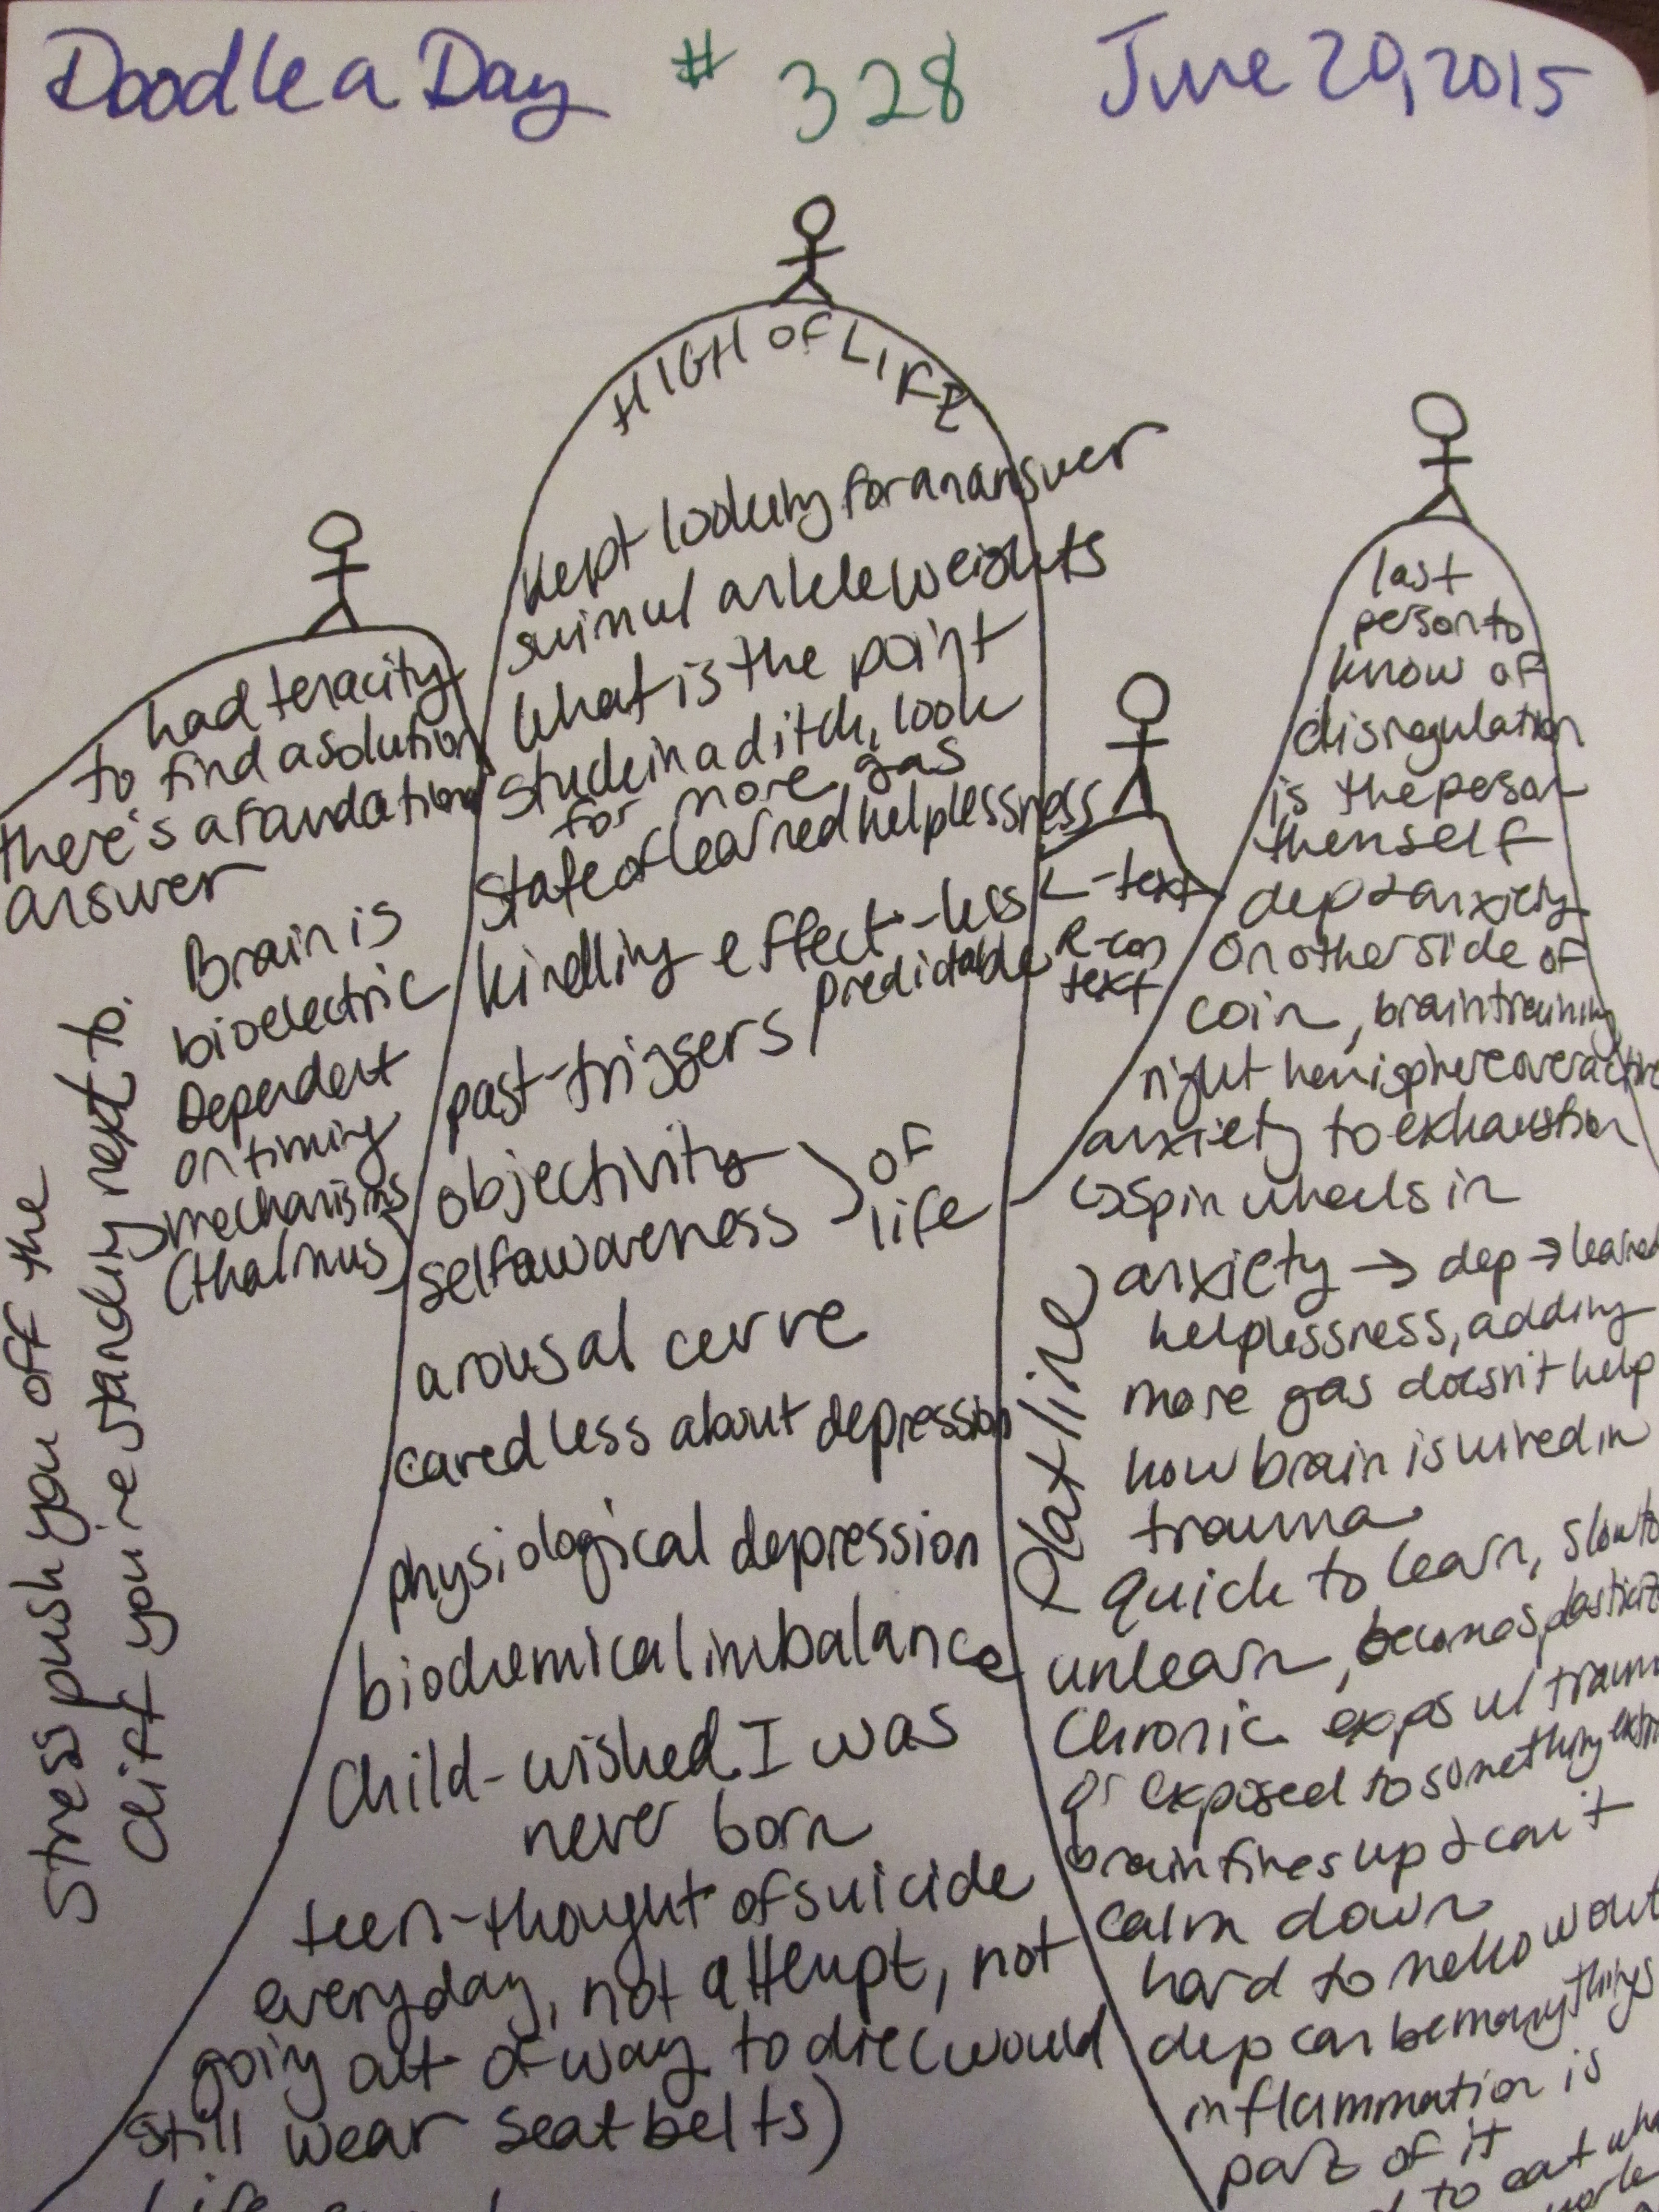 Doodle a Day # 328 June 20, 2015
HIGH OF LIFE
kept looking for an answer
swim w/ ankle weights
what is the point
stuck in a ditch, look
for more gas
state of learned helplessness
kindling effect - less
predictable
past-triggers
objectivity
selfawareness } of
life
arousal curve
cared less about depression
physiological depression
biochemical imbalance
Child - wished I was
never born
teen - thought of suicide
everyday, not attempt, not
going out of way to die (would
still wear seatbelts)
had tenacity
to find a solution
there's a foundation
answer
Brain is
bioelectric
Dependent
on timing
mechanisms
(thalmus)
Stress push you off the
cliff you're standing next to.
L - text
R - con
text
last
person to
know of
disregulation
is the person
themself
dep & anxiety
on other side of
coin, brain training
right hemisphere overactive
anxiety to exhaustion
↳ spin wheels in
anxiety → dep → learned
helplessness, adding
more gas doesn't help
how brain is wired in
trauma
Flat line
quick to learn, slow to
unlearn, becomes
Chronic expos w/ traum
or exposed to something
brain fires up & can't
calm down
hard to mellow out
dep can be many things
inflammation is
part of it
to eat